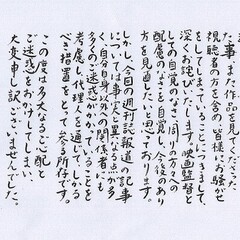 た事、また作品を見てくださった
視聴者の方を含め、皆様にお騒がせ
をしてしまっていることにつきまして、
深くお詫びいたします。映画監督と
しての自覚のなさ、周りの方々への
配慮のなさを自覚し、今後のあり
方を見直したいと思っております。
しかし、今回の週刊誌報道の記事
については事実と異なる点も多
く、自分自身以外の関係者にも
多くのご迷惑がかかっていることを
考慮し、代理人を通じてしかる
べき措置をとって参る所存です。
この度は多大なるご心配と
ご迷惑をおかけしてしまい、
大変申し訳ございませんでした。